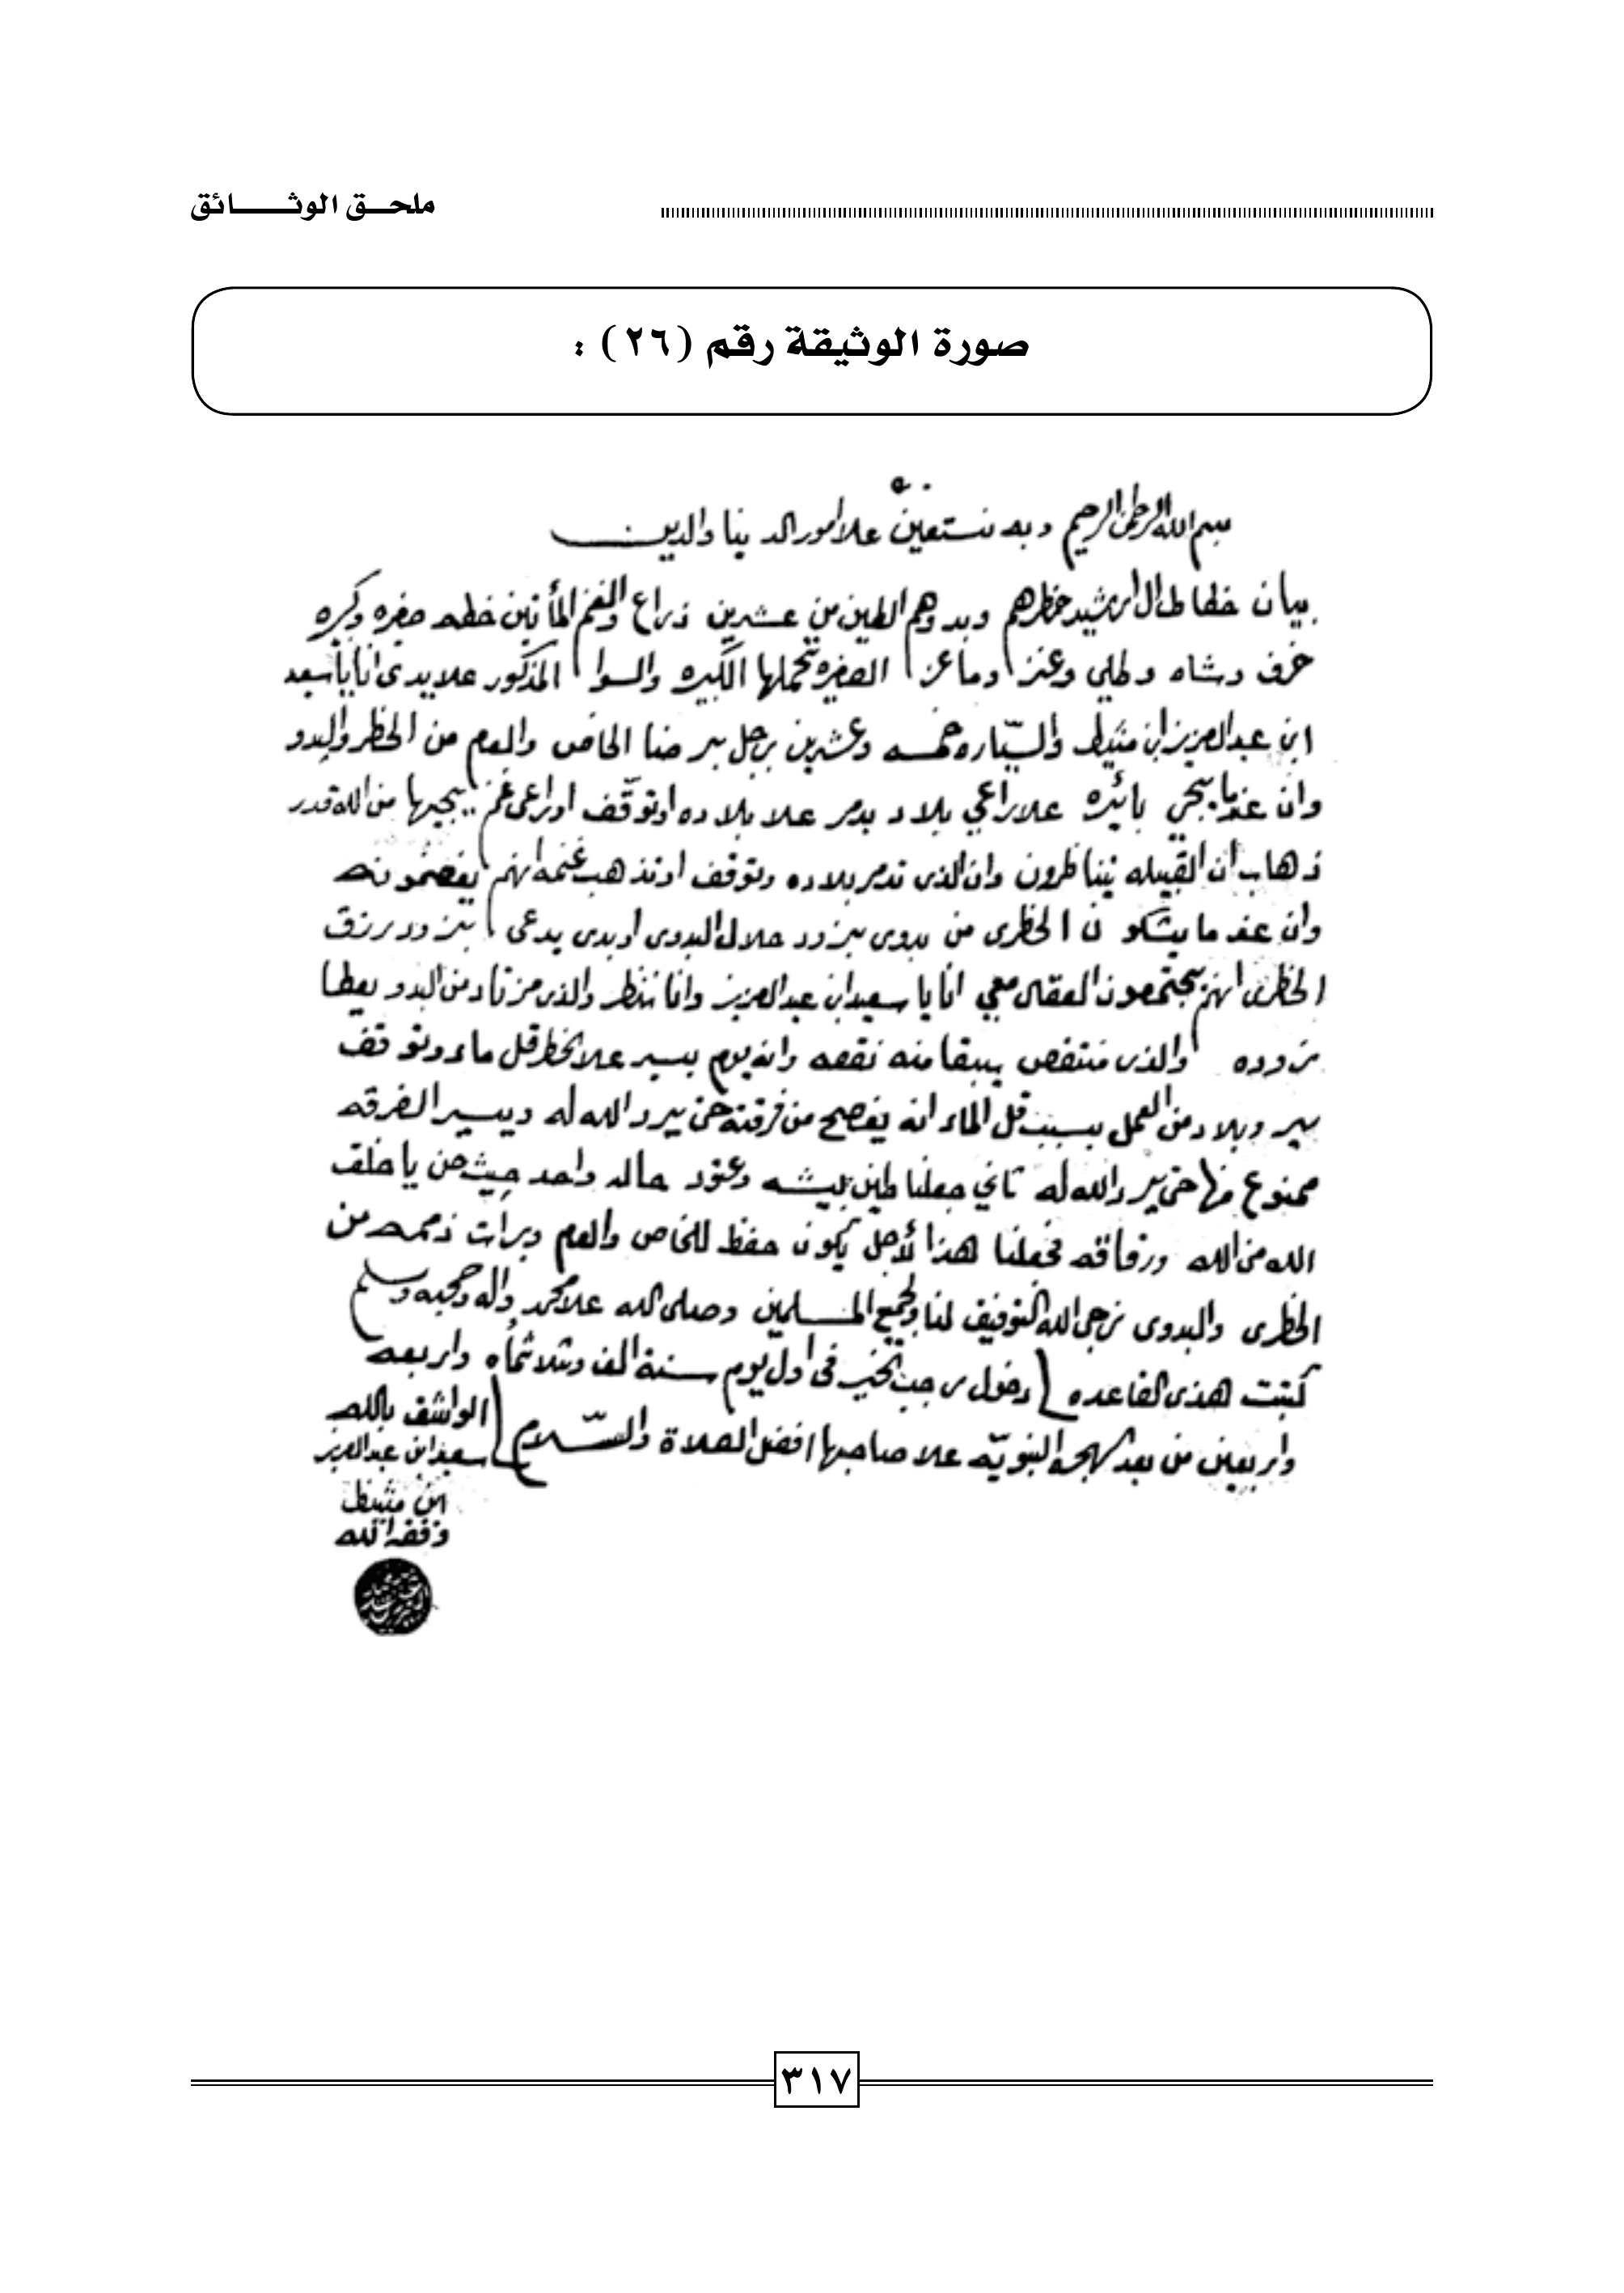 ملحق الوثائق
صورة الوثيقة رقم (٢٦) :
بسم الله الرحمن الرحيم وبه نستعين علا امور الدنيا والدين
بيان خطاط ال ارشيد حظرهم وبدوهم الطين من عشرين ذراع والغنم المأتين خطه صغره وكبره
خرف وشاه وطلي وعنز وماعز الصغيره تحملها الكبيره والسوا المذكور علا يدي انا يا سعيد
ابن عبد العزيز ابن مثيبط والسيّاره خمسه وعشرين رجل برضا الخاص والعام من الحظر والبدو
وان عندما يجي بائره علا راعي بلاد يدمر علا بلاده اوتوقف او راعي غنم يجيها من الله قدر
ذهاب ان القبيله يتناظرون وان الذي تدمر بلاده وتوقف او تذهب غنمه انهم
وان عندما يشكون الحظري من بدوي يزود حلال البدوي او بدوي يدعي بزود رزق
الحظري انهم يجتمعون العقال معي انا يا سعيد ابن عبد العزيز وانا ننظر والذي مزتاد من البدو يعطا
زوده والذي منتقص يبقا منه نقصه وانه يوم يسير علا الحظر قل ماء وتوقف
بير وبلاد من العمل بسبب قل الماء انه يفصح من فرقته حتى يرد الله له ويسير الفرقه
ممنوع منها حتى يرد الله له ثاني جعلنا طين بيشه وعتود حاله واحد حيث من يا خلق
الله من الله ورفاقه فجعلنا هذا لأجل يكون حفظ للخاص والعام وبرات ذممه من
الحظري والبدوي نرجي الله التوفيق لنا ولجميع المسلمين وصلى الله علا محمد واله وصحبه وسلم
كتبت هذي القاعده دخول رجب في اول يوم سنة الف وثلاثماه واربعه
واربعين من بعد الهجره النبويّه علا صاحبها افضل الصلاة والسّلام
الواثق بالله
سعيد ابن عبد العزيز
ابن مثيبط
وفقه الله
٣١٧